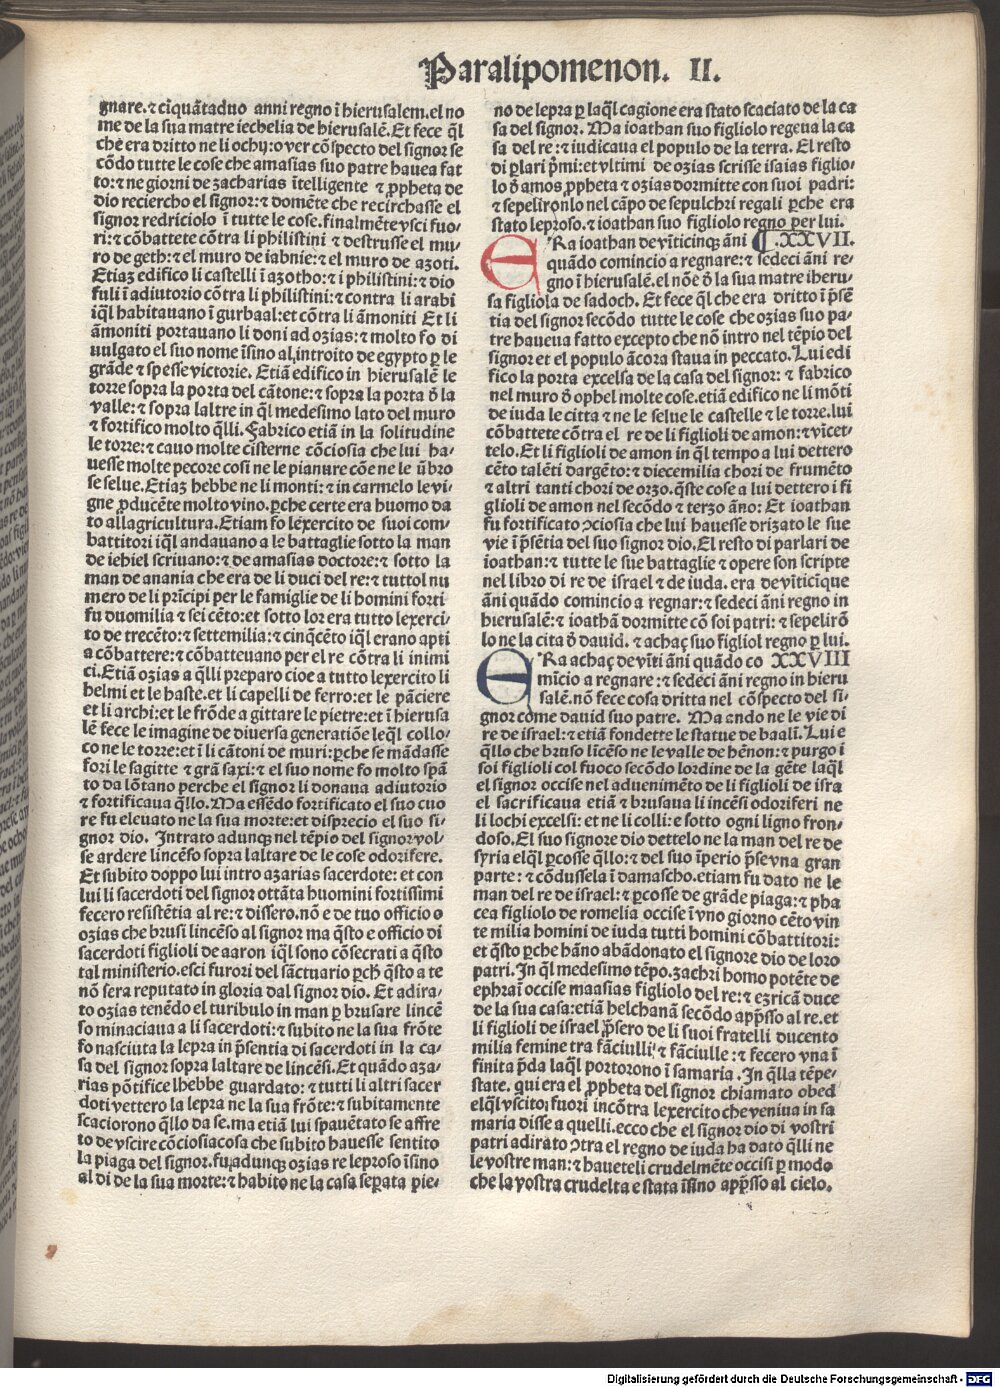 Paralipomenon. II.
gnare.⁊ cīquātaduo anni regno ī hierusalem.el no
me de la sua matre iechelia de hierusalē. Et fece ql̄
che era dritto ne li ochij: o ver cōspecto del signor se
cōdo tutte le cose che amasias suo patre hauea fat
to: ⁊ ne giorni de zacharias ītelligente ⁊ ꝓpheta de
dio reciercho el signor: ⁊ domēte che recirchasse el
signor redriciolo ī tutte le cose. finalmēte vsci fuo/
ri: ⁊ cōbattete cōtra li philistini ⁊ destrusse el mu/
ro de geth: ⁊ el muro de iabnie: ⁊ el muro de azoti.
Etiaz edifico li castelli ī azotho: ⁊ i philistini: ⁊ dio
fuli ī adiutorio cōtra li philistini: ⁊ contra li arabi
iql̄ habitauano ī gurbaal: et cōtra li āmoniti Et li
āmoniti portauano li doni ad ozias: ⁊ molto fo di
uulgato el suo nome īsino al introito de egypto ꝑ le
grāde ⁊ spesse victorie. Etiā edifico in hierusalē le
torre sopra la porta del cātone: ⁊ sopra la porta ō la
valle: ⁊ sopra laltre in ql̄ medesimo lato del muro
⁊ fortifico molto q̄lli. Fabrico etiā in la solitudine
le torre: ⁊ cauo molte cisterne cōciosia che lui ha/
uesse molte pecore cosi ne le pianure cōe ne le ūbro
se selue. Etiaz hebbe ne li monti: ⁊ in carmelo le vi/
gne ꝓducēte molto vino. ꝑche certe era huomo da
to allagricultura. Etiam fo lexercito de suoi com/
battitori iql̄ andauano a le battaglie sotto la man
de iehiel scriuano: ⁊ de amasias doctore: ⁊ sotto la
man de anania che era de li duci del re: ⁊ tuttol nu
mero de li prīcipi per le famiglie de li homini forti
fu duomilia ⁊ sei cēto: et sotto lor era tutto lexerci/
to de trecēto: ⁊ settemilia: ⁊ cinq̄cēto iql̄ erano apti
a cōbattere: ⁊ cōbatteuano per el re cōtra li inimi
ci. Etiā ozias a q̄lli preparo cioe a tutto lexercito li
helmi et le haste. et li capelli de ferro: et le pāciere
et li archi: et le frōde a gittare le pietre: et ī hierusa
lē fece le imagine de diuersa generatiōe leql̄ collo/
co ne le torre: et ī li cātoni de muri: ꝑche se mādasse
fori le sagitte ⁊ grā saxi: ⁊ el suo nome fo molto spā
to da lōtano perche el signor li donaua adiutorio
⁊ fortificaua q̄llo. Ma essēdo fortificato el suo cuo
re fu eleuato ne la sua morte: et disprecio el suo si/
gnor dio. Intrato adunq̄ nel tēpio del signor vol/
se ardere lincēso sopra laltare de le cose odorifere.
Et subito doppo lui intro azarias sacerdote: et con
lui li sacerdoti del signor ottāta huomini fortissimi
fecero resistētia al re: ⁊ dissero. nō e de tuo officio o
ozias che brusi lincēso al signor ma q̄sto e officio di
sacerdoti figlioli de aaron iql̄ sono cōsecrati a q̄sto
tal ministerio. esci furori del sāctuario ꝑch̄ q̄sto a te
nō sera reputato in gloria dal signor dio. Et adira/
to ozias tenēdo el turibulo in man ꝑ brusare lincē
so minaciaua a li sacerdoti: ⁊ subito ne la sua frōte
fo nasciuta la lepra in p̄sentia di sacerdoti in la ca/
sa del signor sopra laltare de lincēsi. Et quādo aza/
rias pōtifice lhebbe guardato: ⁊ tutti li altri sacer
doti vettero la lepra ne la sua frōte: ⁊ subitamente
scaciorono q̄llo da se. ma etiā lui spauētato se affre
to de vscire cōciosiacosa che subito hauesse sentito
la piaga del signor. fu adunq̄ ozias re leproso īsino
al di de la sua morte: ⁊ habito ne la casa seꝑata pie/
no de lepra ꝑ laql̄ cagione era stato scaciato de la ca
sa del signor. Ma ioathan suo figliolo regeua la ca
sa del re: ⁊ iudicaua el populo de la terra. El resto
di ꝑlari p̄mi: et vltimi de ozias scrisse isaias figlio/
lo ō amos ꝓpheta ⁊ ozias dormitte con suoi padri:
⁊ sepelironlo nel cāpo de sepulchri regali ꝑche era
stato leproso. ⁊ ioathan suo figliolo regno per lui.
ERa ioathan de vīticinq̄ āni ¶.XXVII.
quādo comincio a regnare: ⁊ sedeci āni re/
gno ī hierusalē. el nōe ō la sua matre iheru/
sa figliola de sadoch. Et fece ql̄ che era dritto ī p̄sē
tia del signor secōdo tutte le cose che ozias suo pa/
tre haueua fatto excepto che nō intro nel tēpio del
signor et el populo ācora staua in peccato. Lui edi
fico la porta excelsa de la casa del signor: ⁊ fabrico
nel muro ō ophel molte cose. etiā edifico ne li mōti
de iuda le citta ⁊ ne le selue le castelle ⁊ le torre. lui
cōbattete cōtra el re de li figlioli de amon: ⁊ vicet/
telo. Et li figlioli de amon in ql̄ tempo a lui dettero
cēto talēti dargēto: ⁊ diecemilia chori de frumēto
⁊ altri tanti chori de orzo. q̄ste cose a lui dettero i fi
glioli de amon nel secōdo ⁊ terzo āno: Et ioathan
fu fortificato ꝯciosia che lui hauesse drizato le sue
vie ī p̄sētia del suo signor dio. El resto di parlari de
ioathan: ⁊ tutte le sue battaglie ⁊ opere son scripte
nel libro di re de israel ⁊ de iuda. era de vīticīque
āni quādo comincio a regnar: ⁊ sedeci āni regno in
hierusalē: ⁊ ioathā dormitte cō soi patri: ⁊ sepelirō
lo ne la cita ō dauid. ⁊ achaç suo figliol regno ꝑ lui.
ERa achaç de vīti āni quādo co XXVIII
mīcio a regnare: ⁊ sedeci āni regno in hieru
salē. nō fece cosa dritta nel cōspecto del si/
gnor come dauid suo patre. Ma ando ne le vie di
re de israel: ⁊ etiā fondette le statue de baali. Lui e
q̄llo che bruso līcēso ne le valle de hēnon: ⁊ purgo i
soi figlioli col fuoco secōdo lordine de la gēte laql̄
el signor occise nel aduenimēto de li figlioli de isra
el sacrificaua etiā ⁊ brusaua li incēsi odoriferi ne
li lochi excelsi: et ne li colli: e sotto ogni ligno fron/
doso. El suo signore dio dettelo ne la man del re de
syria elql̄ ꝑcosse q̄llo: ⁊ del suo īperio p̄se vna gran
parte: ⁊ cōdussela ī damascho. etiam fu dato ne le
man del re de israel: ⁊ ꝑcosse de grāde piaga: ⁊ pha
cea figliolo de romelia occise ī vno giorno cēto vin
te milia homini de iuda tutti homini cōbattitori:
et q̄sto ꝑche hāno abādonato el signore dio de loro
patri. In ql̄ medesimo tēpo. zachri homo potēte de
ephraī occise maasias figliolo del re: ⁊ ezricā duce
de la sua casa: etiā helchanā secōdo app̄sso al re. et
li figlioli de israel p̄sero de li suoi fratelli ducento
milia femine tra fāciulli: ⁊ fāciulle: ⁊ fecero vna ī
finita p̄da laql̄ portorono ī samaria. In q̄lla tēpe/
state. qui era el ꝓpheta del signor chiamato obed
elql̄ vscito fuori incōtra lexercito che veniua in sa
maria disse a quelli. ecco che el signor dio di vostri
patri adirato ꝯtra el regno de iuda ha dato q̄lli ne
le vostre man: ⁊ haueteli crudelmēte occisi ꝑ modo
che la vostra crudelta e stata īsino app̄sso al cielo.
Digitalisierung gefördert durch die Deutsche Forschungsgemeinschaft - DFG